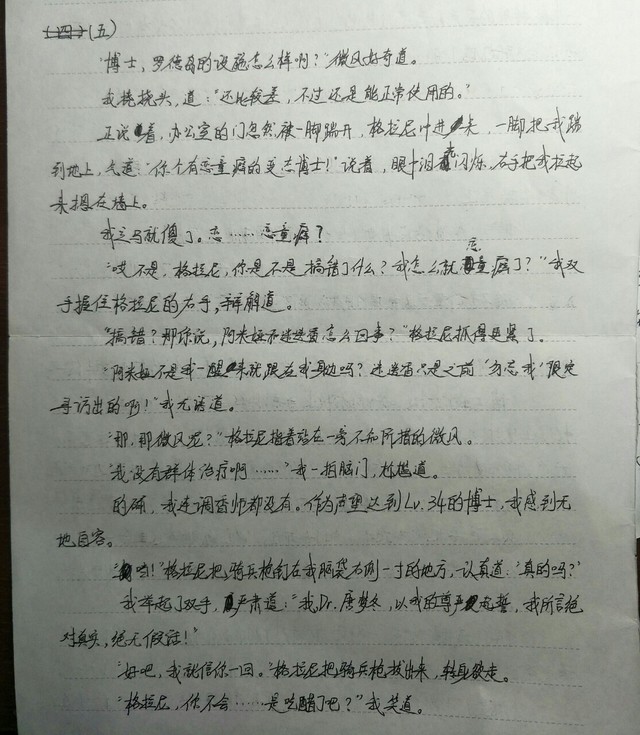 (四)(五)
"博士，罗德岛的设施怎么样啊？"微风好奇道。
我挠挠头，道："还比较差，不过还是能正常使用的。"
正说着，办公室的门忽然被一脚踹开，格拉尼冲进来，一脚把我踹
到地上，气道："你个有恋童癖的变态博士！"说着，眼中泪花闪烁，右手把我拉起
来摁在墙上。
我立马就傻了。恋……恋童癖？
"哎不是，格拉尼，你是不是搞错了什么？我怎么就恋童癖了？"我双
手握住格拉尼的右手，辩解道。
"搞错？那你说，阿米娅和迷迭香怎么回事？"格拉尼抓得更紧了。
"阿米娅不是我一醒来就跟在我身边吗？迷迭香只是之前'勿忘我'限定
寻访出的啊！"我无语道。
"那，那微风呢？"格拉尼指着站在一旁不知所措的微风。
"我没有群体治疗啊……"我一拍脑门，尴尬道。
的确，我连调香师都没有。作为声望达到Lv.34的博士，我感到无
地自容。
"格拉尼把骑兵枪钉在我脑袋右侧一寸的地方，认真道："真的吗？"
我举起了双手，严肃道："我，Dr.唐梦冬，以我的尊严起誓，我所言绝
对真实，绝无假话！"
"好吧，我就信你一回。"格拉尼把骑兵枪拔出来，转身欲走。
"格拉尼，你不会……是吃醋了吧？"我笑道。